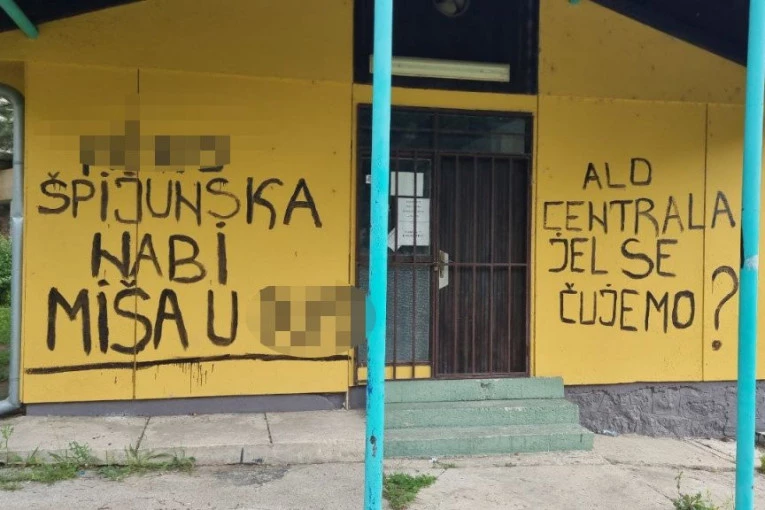 ŠPIJUNSKA
NABI
MIŠA U
ALO
CENTRALA
JEL SE
ČUJEMO?